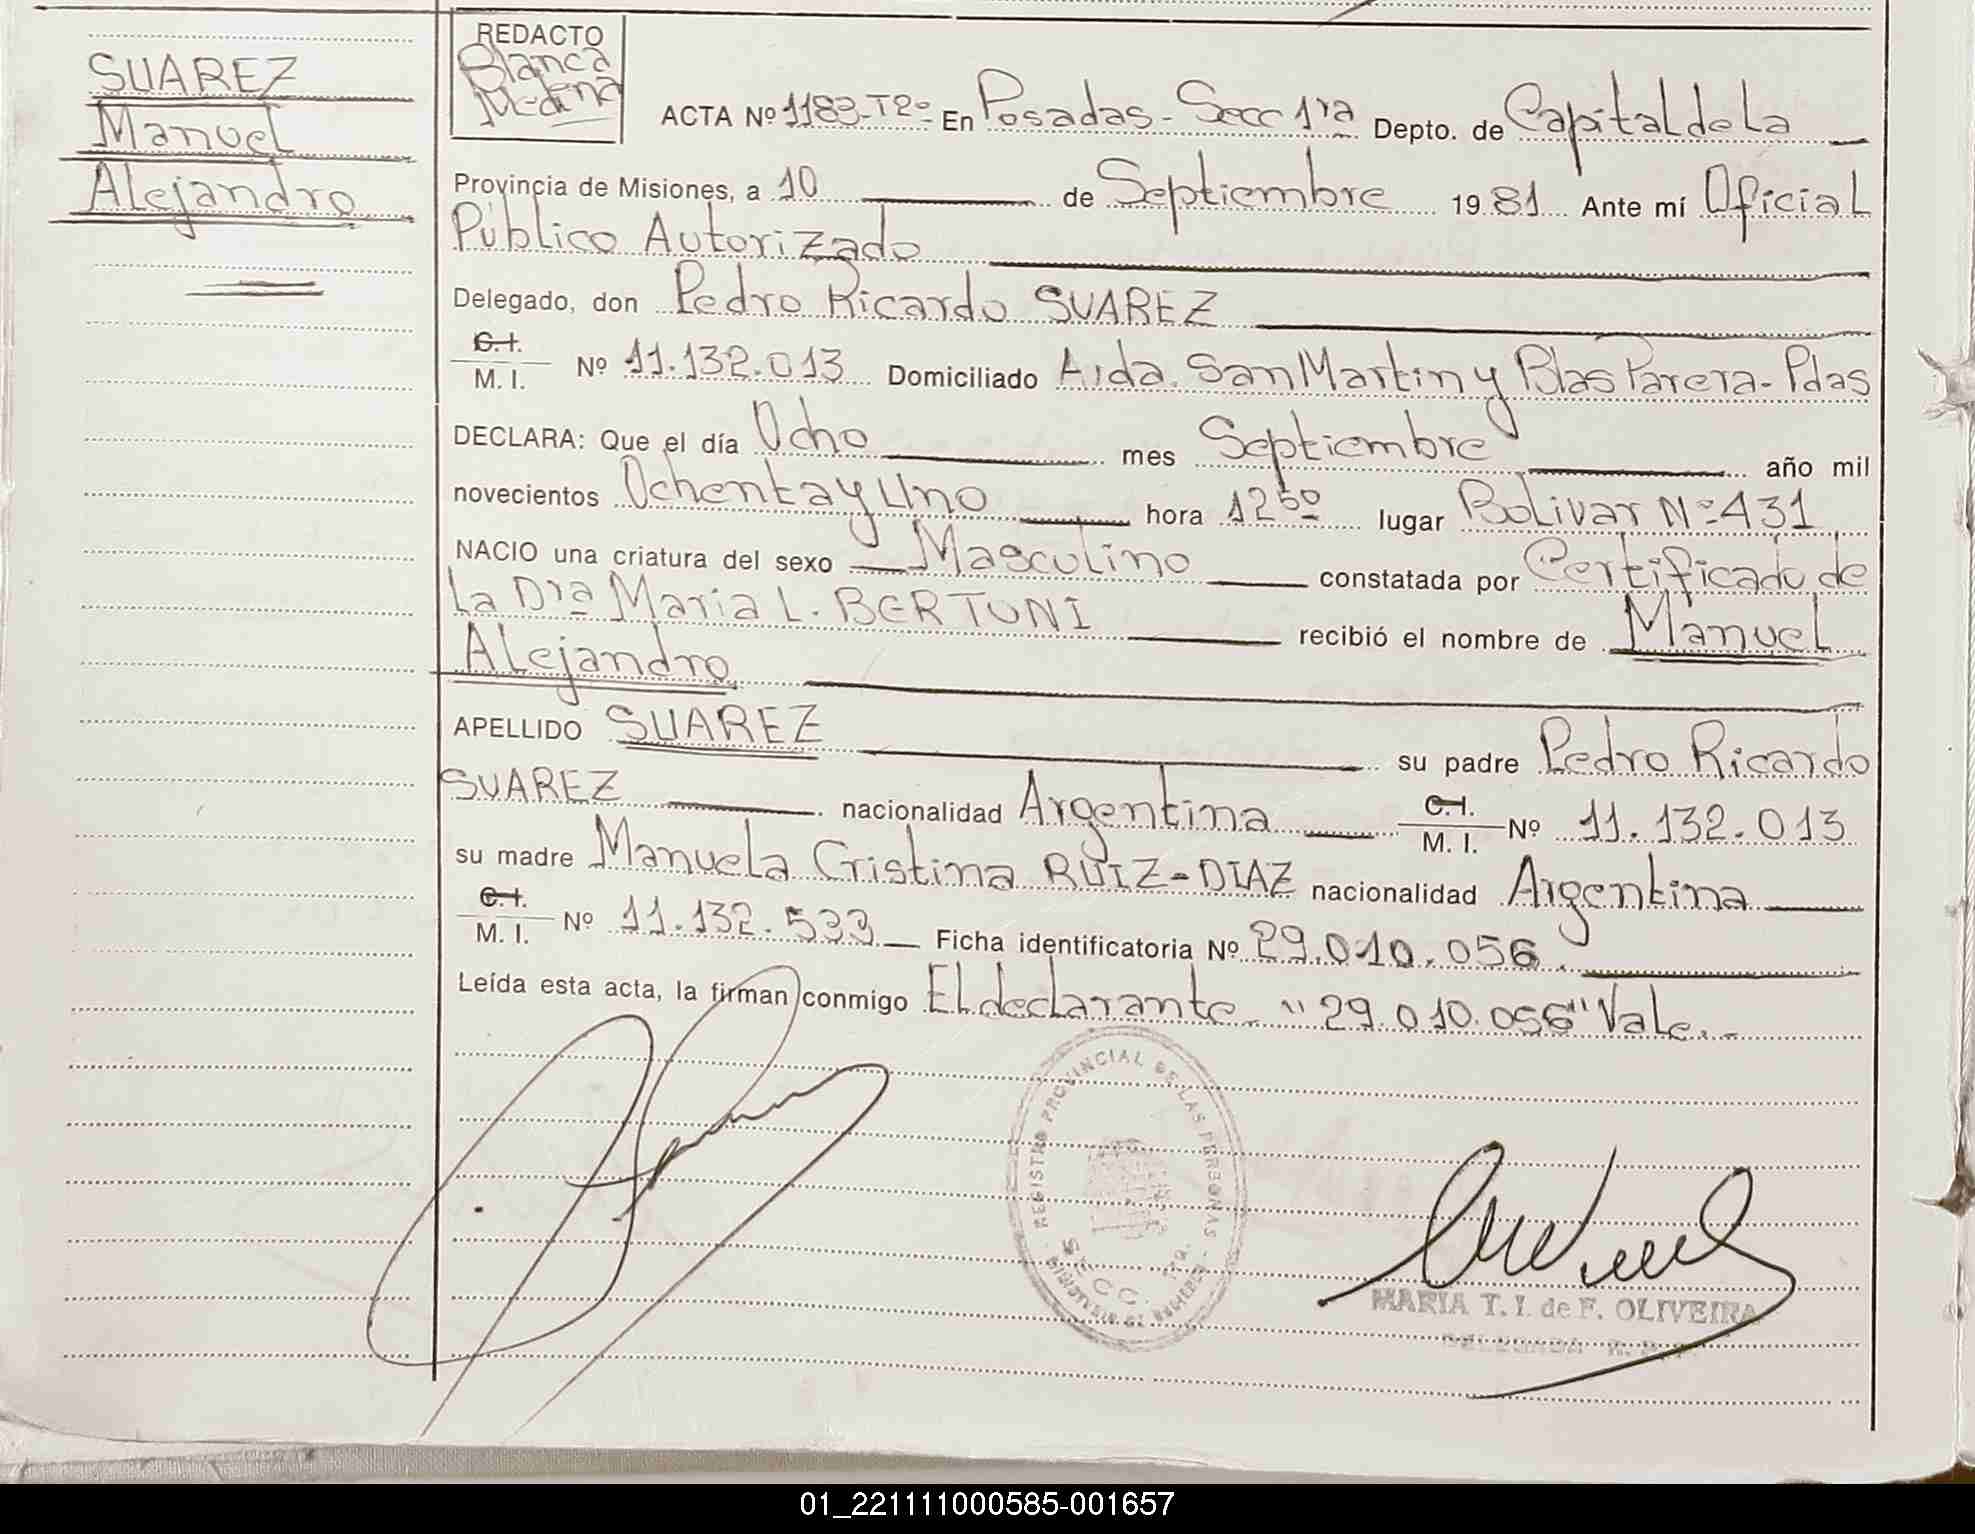 SUAREZ
Manuel
Alejandro
REDACTO
Blanca
Medina
ACTA Nº 1183-T2º En Posadas - Secc 1ra Depto. de Capital de la
Provincia de Misiones, a 10 de Septiembre 1981 Ante mí Oficial
Público Autorizado
Delegado, don Pedro Ricardo SUAREZ
C.I.
M.I. Nº 11.132.013 Domiciliado Avda. San Martin y Blas Parera - Pdas
DECLARA: Que el día Ocho mes Septiembre año mil
novecientos Ochenta y Uno hora 12⁵⁰ lugar Bolivar Nº 431
NACIO una criatura del sexo Masculino constatada por Certificado de
la Dra Maria L. BERTONI recibió el nombre de Manuel
Alejandro
APELLIDO SUAREZ su padre Pedro Ricardo
SUAREZ nacionalidad Argentina C.I. M.I. Nº 11.132.013
su madre Manuela Cristina RUIZ-DIAZ nacionalidad Argentina
C.I.
M.I. Nº 11.132.533 Ficha identificatoria Nº 29.010.056.
Leída esta acta, la firman conmigo El declarante - "29.010.056" Vale.-
REGISTRO PROVINCIAL DE LAS PERSONAS
SECC. 1ra.
MINISTERIO DE GOBIERNO
MARIA T. I. de F. OLIVEIRA
DELEGADA R. P. P.
01_221111000585-001657